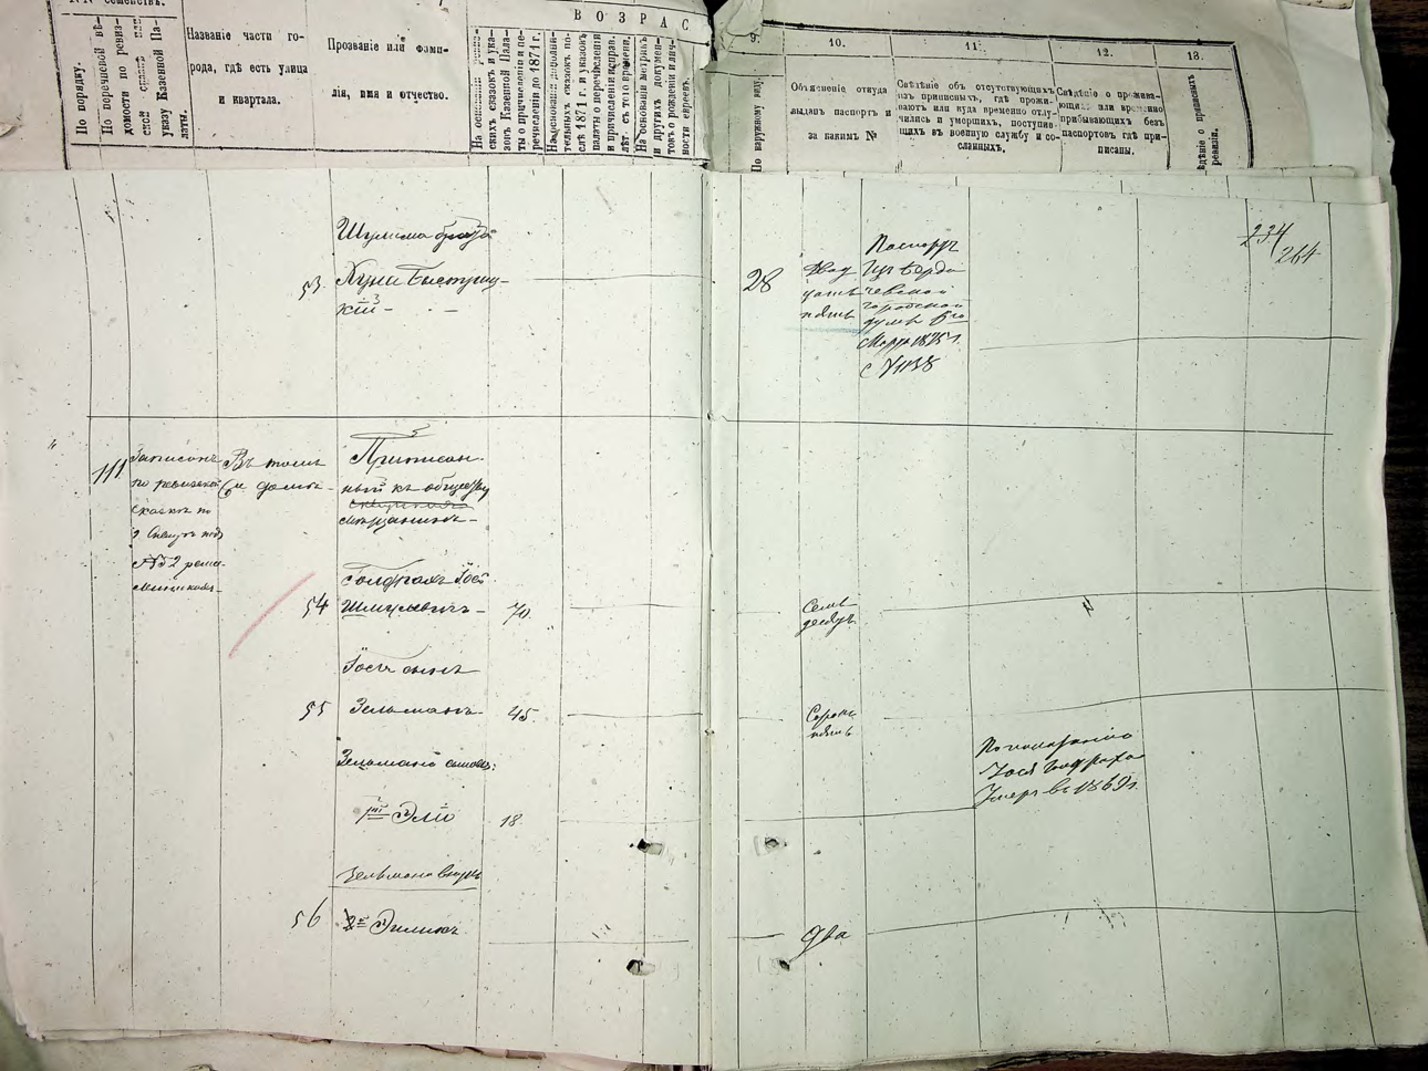 №№ семействъ.
По порядку.
По перечневой вѣ-
домости по ревиз-
ской сказкѣ или
указу Казенной Па-
латы.
Названіе части го-
рода, гдѣ есть улица
и квартала.
Прозваніе или фами-
лія, имя и отчество.
ВОЗРАС
На основаніи ревиз-
скихъ сказокъ и ука-
зовъ Казенной Пала-
ты о причисленіи и пе-
речисленіи до 1871 г.
На основаніи дополни-
тельныхъ сказокъ по-
слѣ 1871 г. и указовъ
палаты о перечисленіи
и причисленіи исправ.
лѣт. съ того времени.
На основаніи метрикъ
и другихъ докумен-
товъ о рожденіи и лич-
ности евреевъ.
9.
По наружному виду.
10.
Объясненіе откуда
выданъ паспортъ и
за какимъ №
11.
Свѣдѣніе объ отсутствующихъ
изъ приписныхъ, гдѣ прожи-
ваютъ или куда временно отлу-
чились и умершихъ, поступив-
щихъ въ военную службу и со-
сланныхъ.
12.
Свѣдѣніе о прожива-
ющихъ или временно
прибывающихъ безъ
паспортовъ гдѣ при-
писаны.
13.
ѣдѣніе о прописныхъ
ревизіи.
234
264
Шулима братъ
53 Нуна Быстриц-
кій
28
Двад
цать
пять
Паспортъ
изъ Берди
чевской
городской
думы 6го
Марта 1875 г.
с № 1138
111
Записанъ
по ревизской
сказкѣ по
№ 2 реме-
Въ томъ
же домѣ
Приписан-
ный къ обществу
мѣщанинъ
Голдрахъ Іось
54 Шмулевичъ 70.
Семь
десятъ
Іося сынъ
55 Зельманъ 45.
Сорокъ
пять
Зельмана сыновья:
1й Эли 18.
По показанію
Іося Голдраха
Умеръ въ 1869 г.
Зельмана внукъ
56
Два